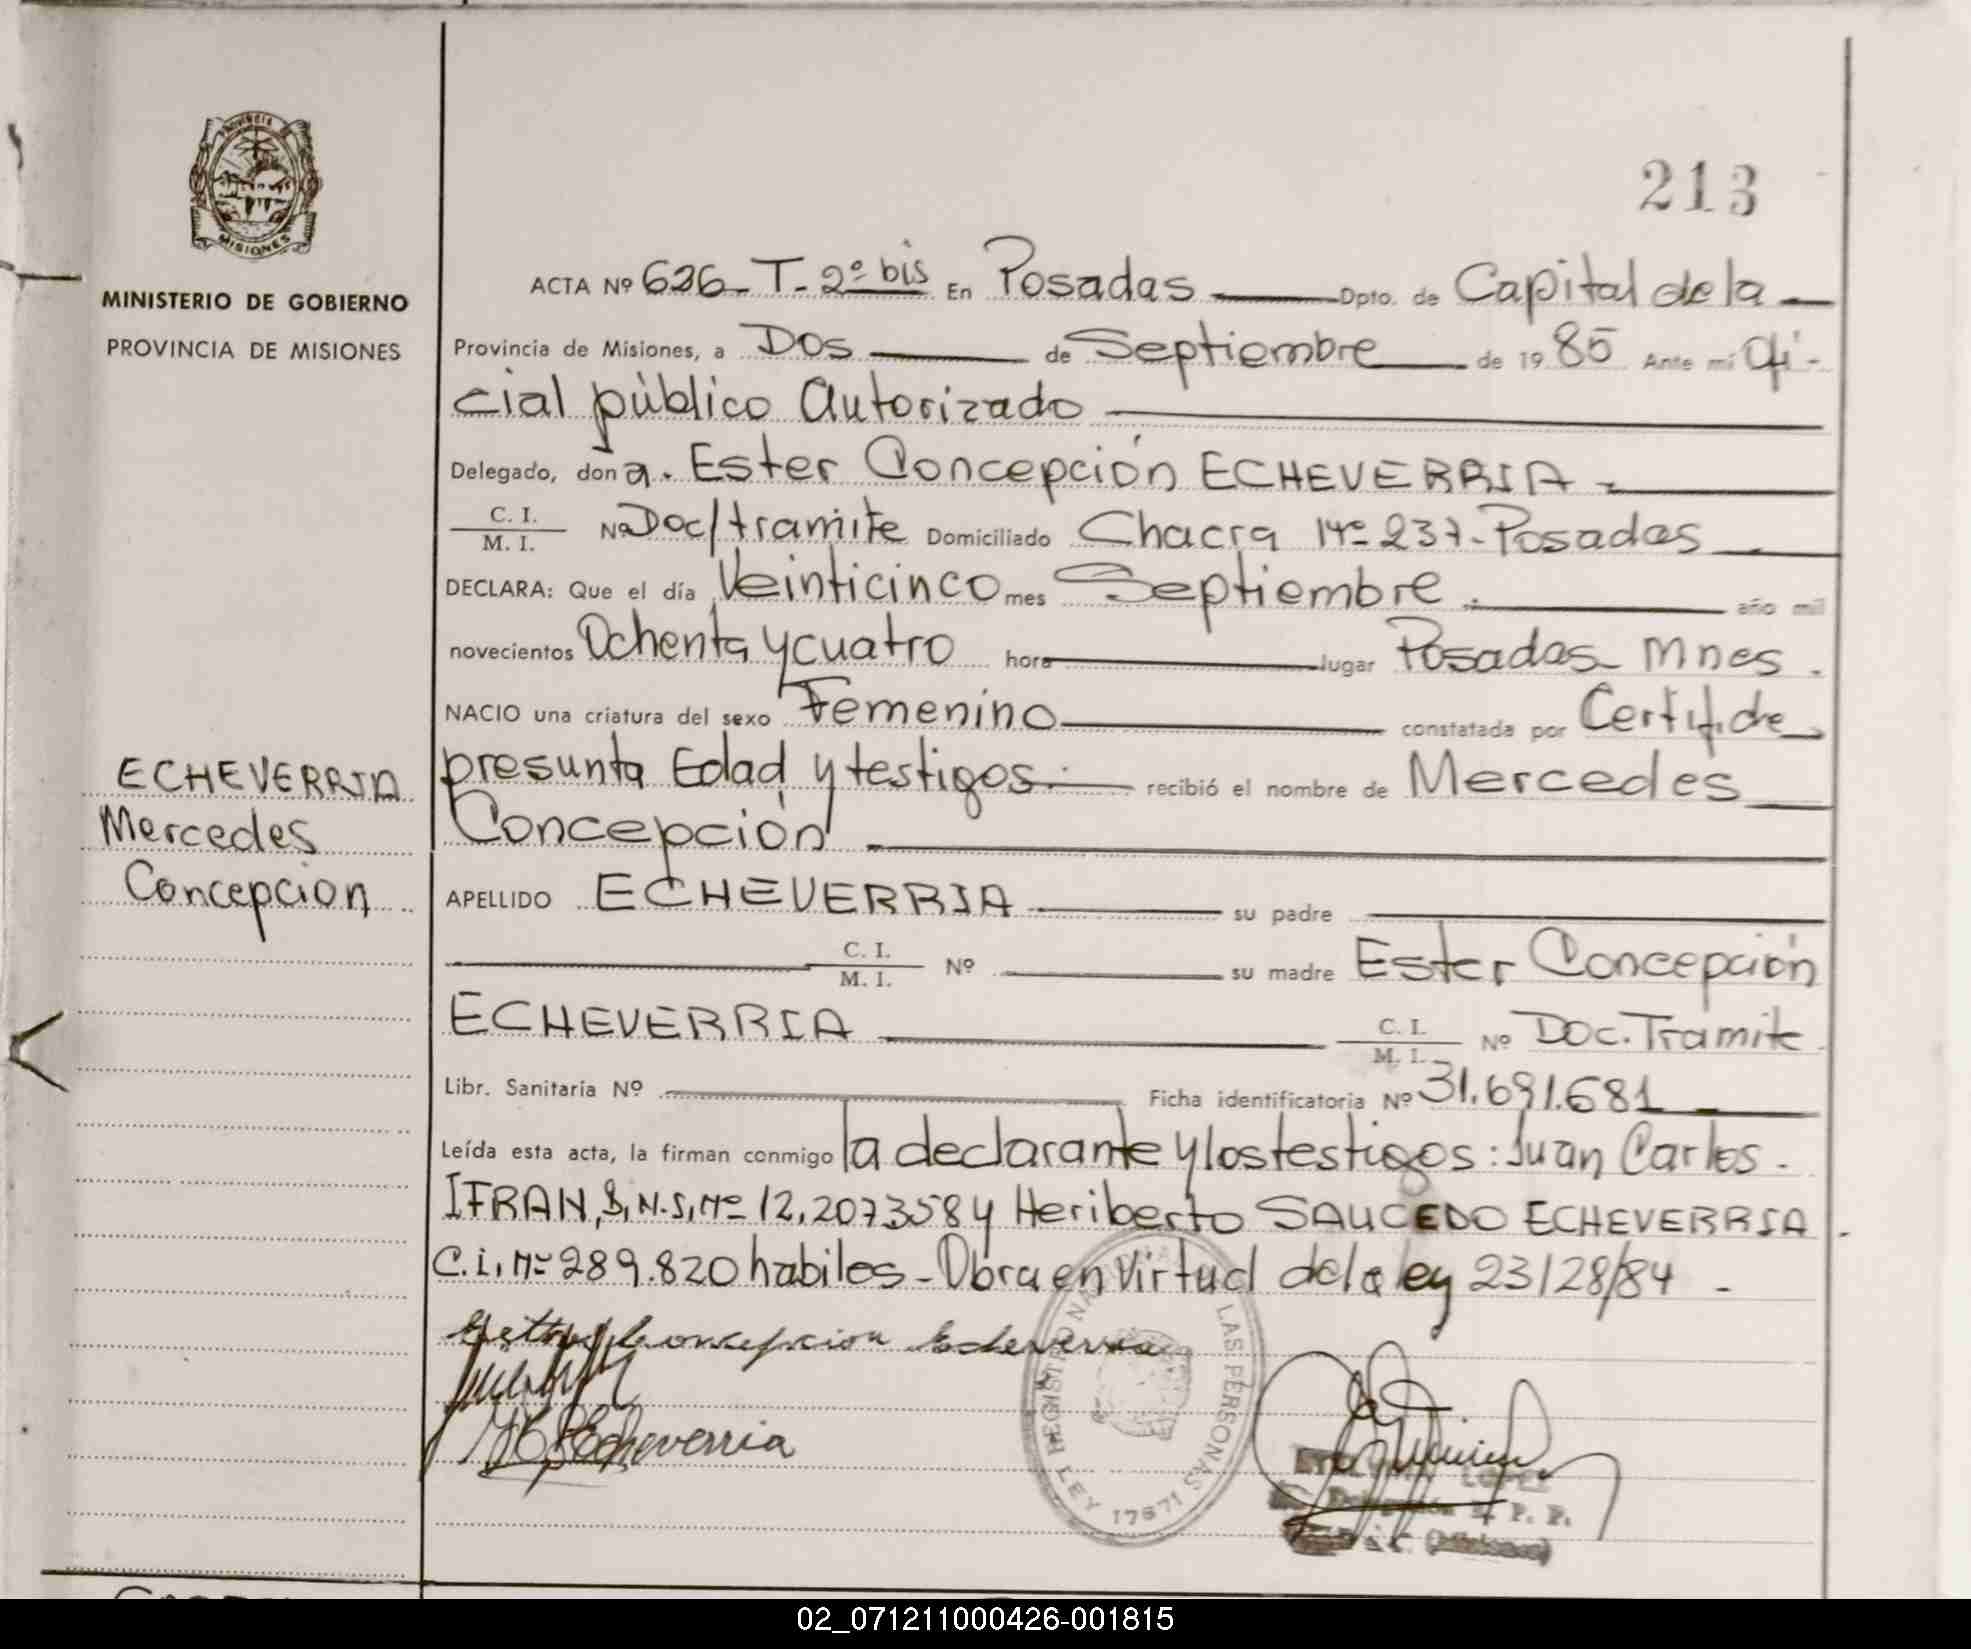 213
PROVINCIA DE
MISIONES
MINISTERIO DE GOBIERNO
PROVINCIA DE MISIONES
ACTA Nº 626-T-2º bis En Posadas Dpto. de Capital de la
Provincia de Misiones, a Dos de Septiembre de 1985 Ante mi Ofi-
cial público Autorizado
Delegado, don a. Ester Concepción ECHEVERRIA.
C. I.
M. I. Nº Doc/tramite Domiciliado Chacra Nº 237-Posadas
DECLARA: Que el día Veinticinco mes Septiembre. año mil
novecientos Ochenta y cuatro hora lugar Posadas Mnes.
NACIO una criatura del sexo Femenino constatada por Certif. de
presunta Edad y testigos. recibió el nombre de Mercedes
Concepción
ECHEVERRIA
Mercedes
Concepcion
APELLIDO ECHEVERRIA su padre
C. I.
M. I. Nº su madre Ester Concepción
ECHEVERRIA C. I.
M. I. Nº Doc. Tramite
Libr. Sanitaria Nº Ficha identificatoria Nº 31.691.681
Leída esta acta, la firman conmigo la declarante y los testigos: Juan Carlos.
IFRAN, D.N.I, Nº 12.207358 y Heriberto SAUCEDO ECHEVERRIA
C.I, Nº 289.820 habiles - Obra en Virtud de la ley 23128/84 -
Esther Concepcion Echeverria
Echeverria
REGISTRO NA LAS PERSONAS
LEY 17671
LOPEZ
02_071211000426-001815